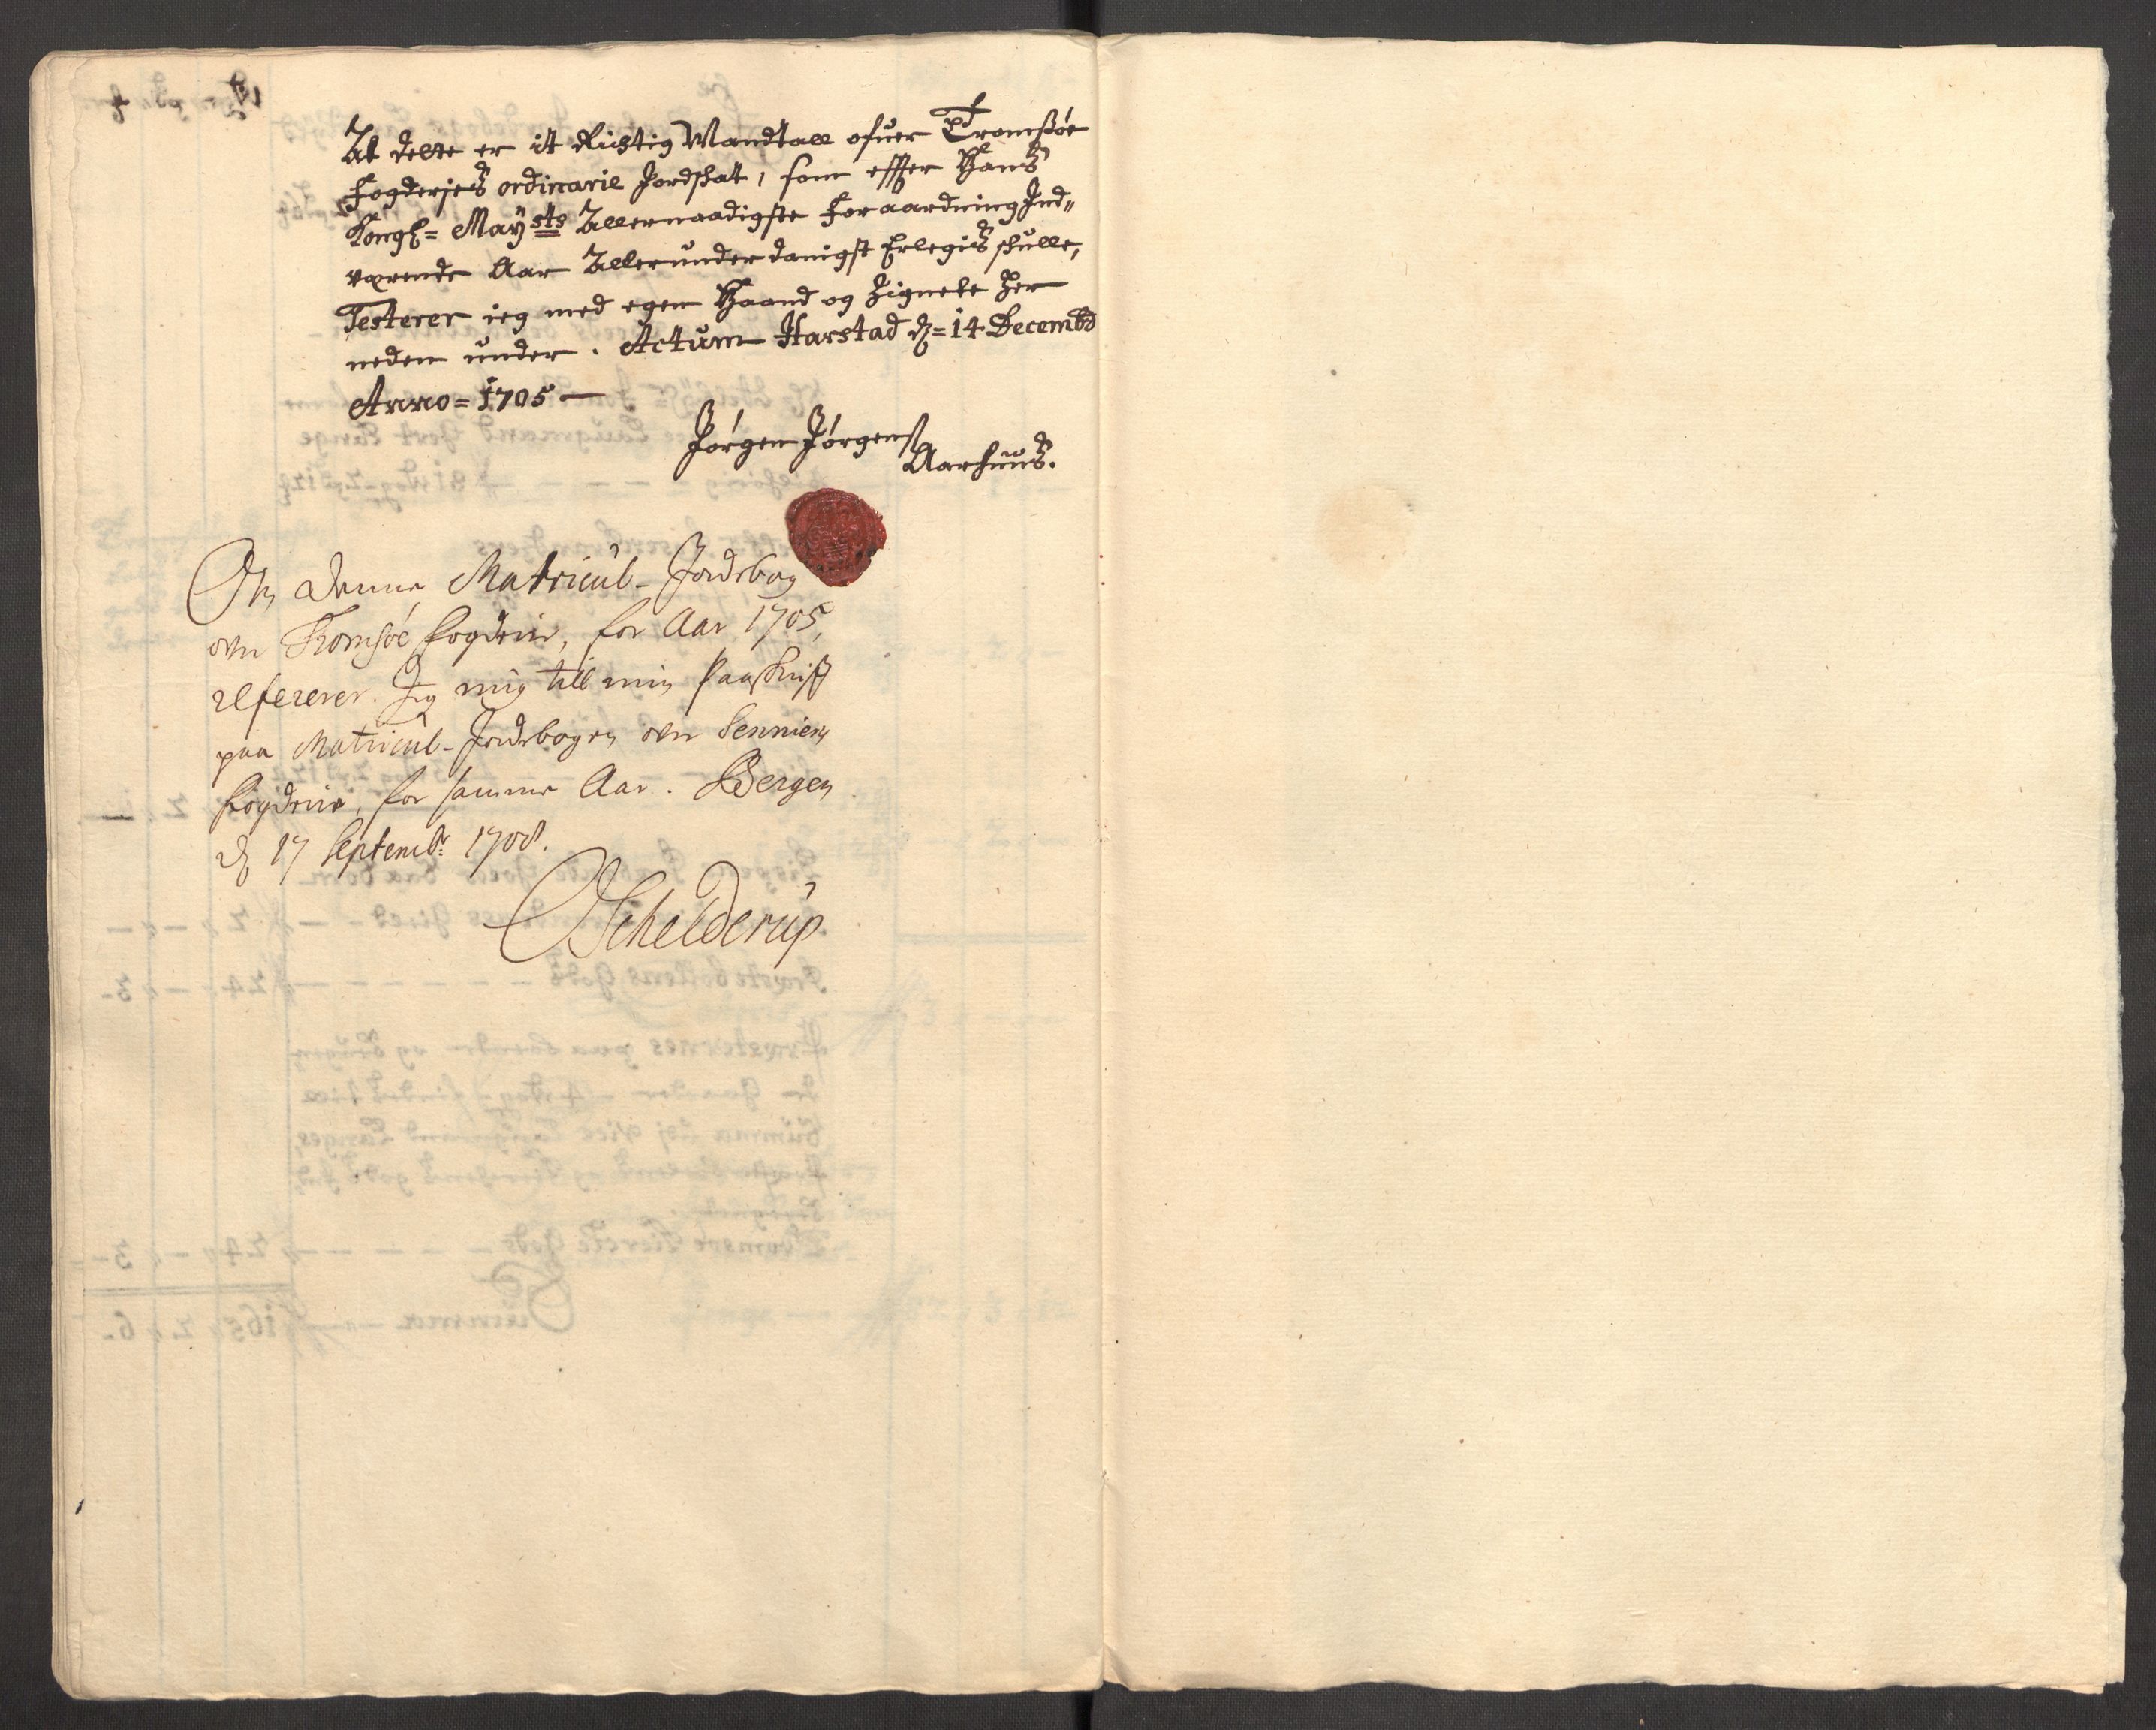 At dette er it Rigtig Mandtall ofuer Tromsøe
Fogderjes ordinarie Jordskat, som effter Hans
Kongl= Maysts Allernaadigste Foraardning Ind„
værende Aar Allerunderdanigst Erlegis skulle,
Testerer ieg med egen Haand og Zignete her
neden under. Actum Harstad d= 14 Decembr
Anno = 1705 —
Jørgen Jørgens
Aarhuus.
Om denne Matricul-Jordebog
over Tromsøe fogderie, for Aar 1705,
refererer Jeg mig till min Paaskrift
paa Matricul-Jordebogen over Sennien
fogderie, for samme Aar. Bergen
d 17 Septembr: 1708.
Schelderup